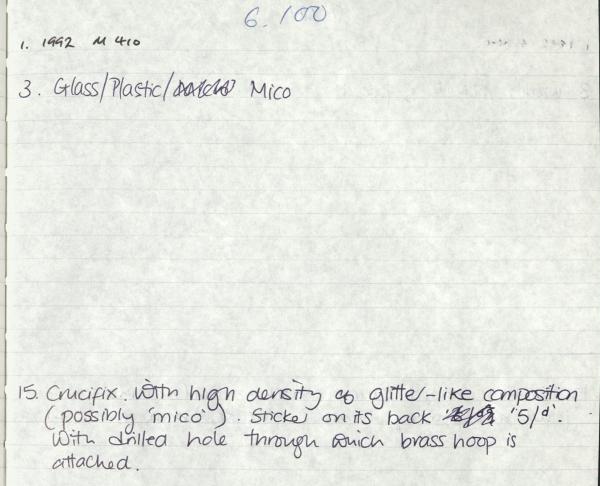 6.100
1. 1992 M 410
3. Glass/Plastic/ Mico
15. Crucifix. With high density of glitter-like composition
(possibly 'mico'). Sticker on its back '5/d'.
With drilled hole through which brass hoop is
attached.